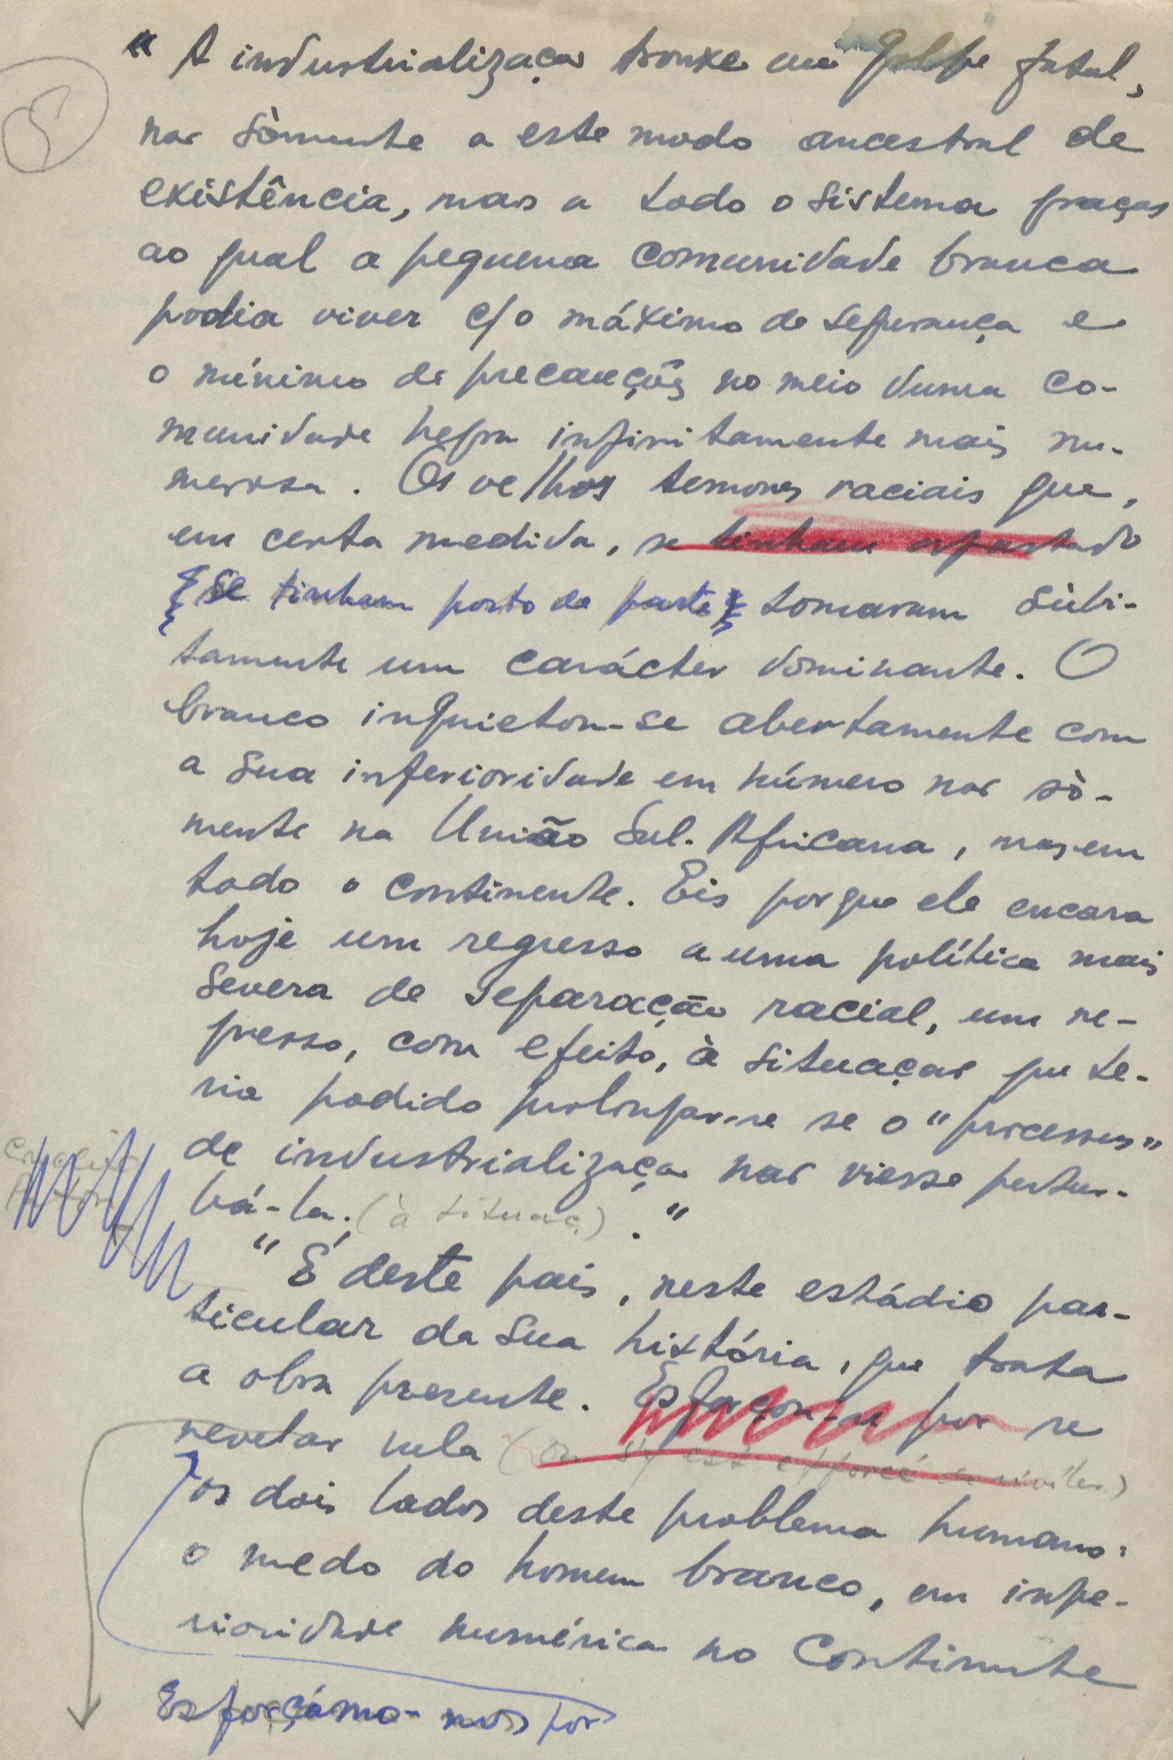 5
" A industrialização trouxe um golpe fatal,
não sòmente a este modo ancestral de
existência, mas a todo o sistema graças
ao qual a pequena comunidade branca
podia viver c/o máximo de segurança e
o mínimo de precauções no meio duma co-
munidade negra infinitamente mais nu-
merosa. Os velhos temores raciais que,
em certa medida, se tinham afastado
se tinham posto de parte tomaram sùbi-
tamente um carácter dominante. O
branco inquietou-se abertamente com
a sua inferioridade em número não sò-
mente na União Sul-Africana, mas em
todo o continente. Eis porque ele encara
hoje um regresso a uma política mais
severa de separação racial, um re-
gresso, com efeito, à situação que te-
ria podido prolongar-se se o "processus"
de industrialização não viesse pertur-
bá-la. (à situaç) . "
" É deste país, neste estádio par-
ticular da sua história, que trata
a obra presente. Esforçou-se por se
revelar nela
os dois lados deste problema humano:
o medo do homem branco, em infe-
rioridade numérica no Continente
Esforçámo-nos por